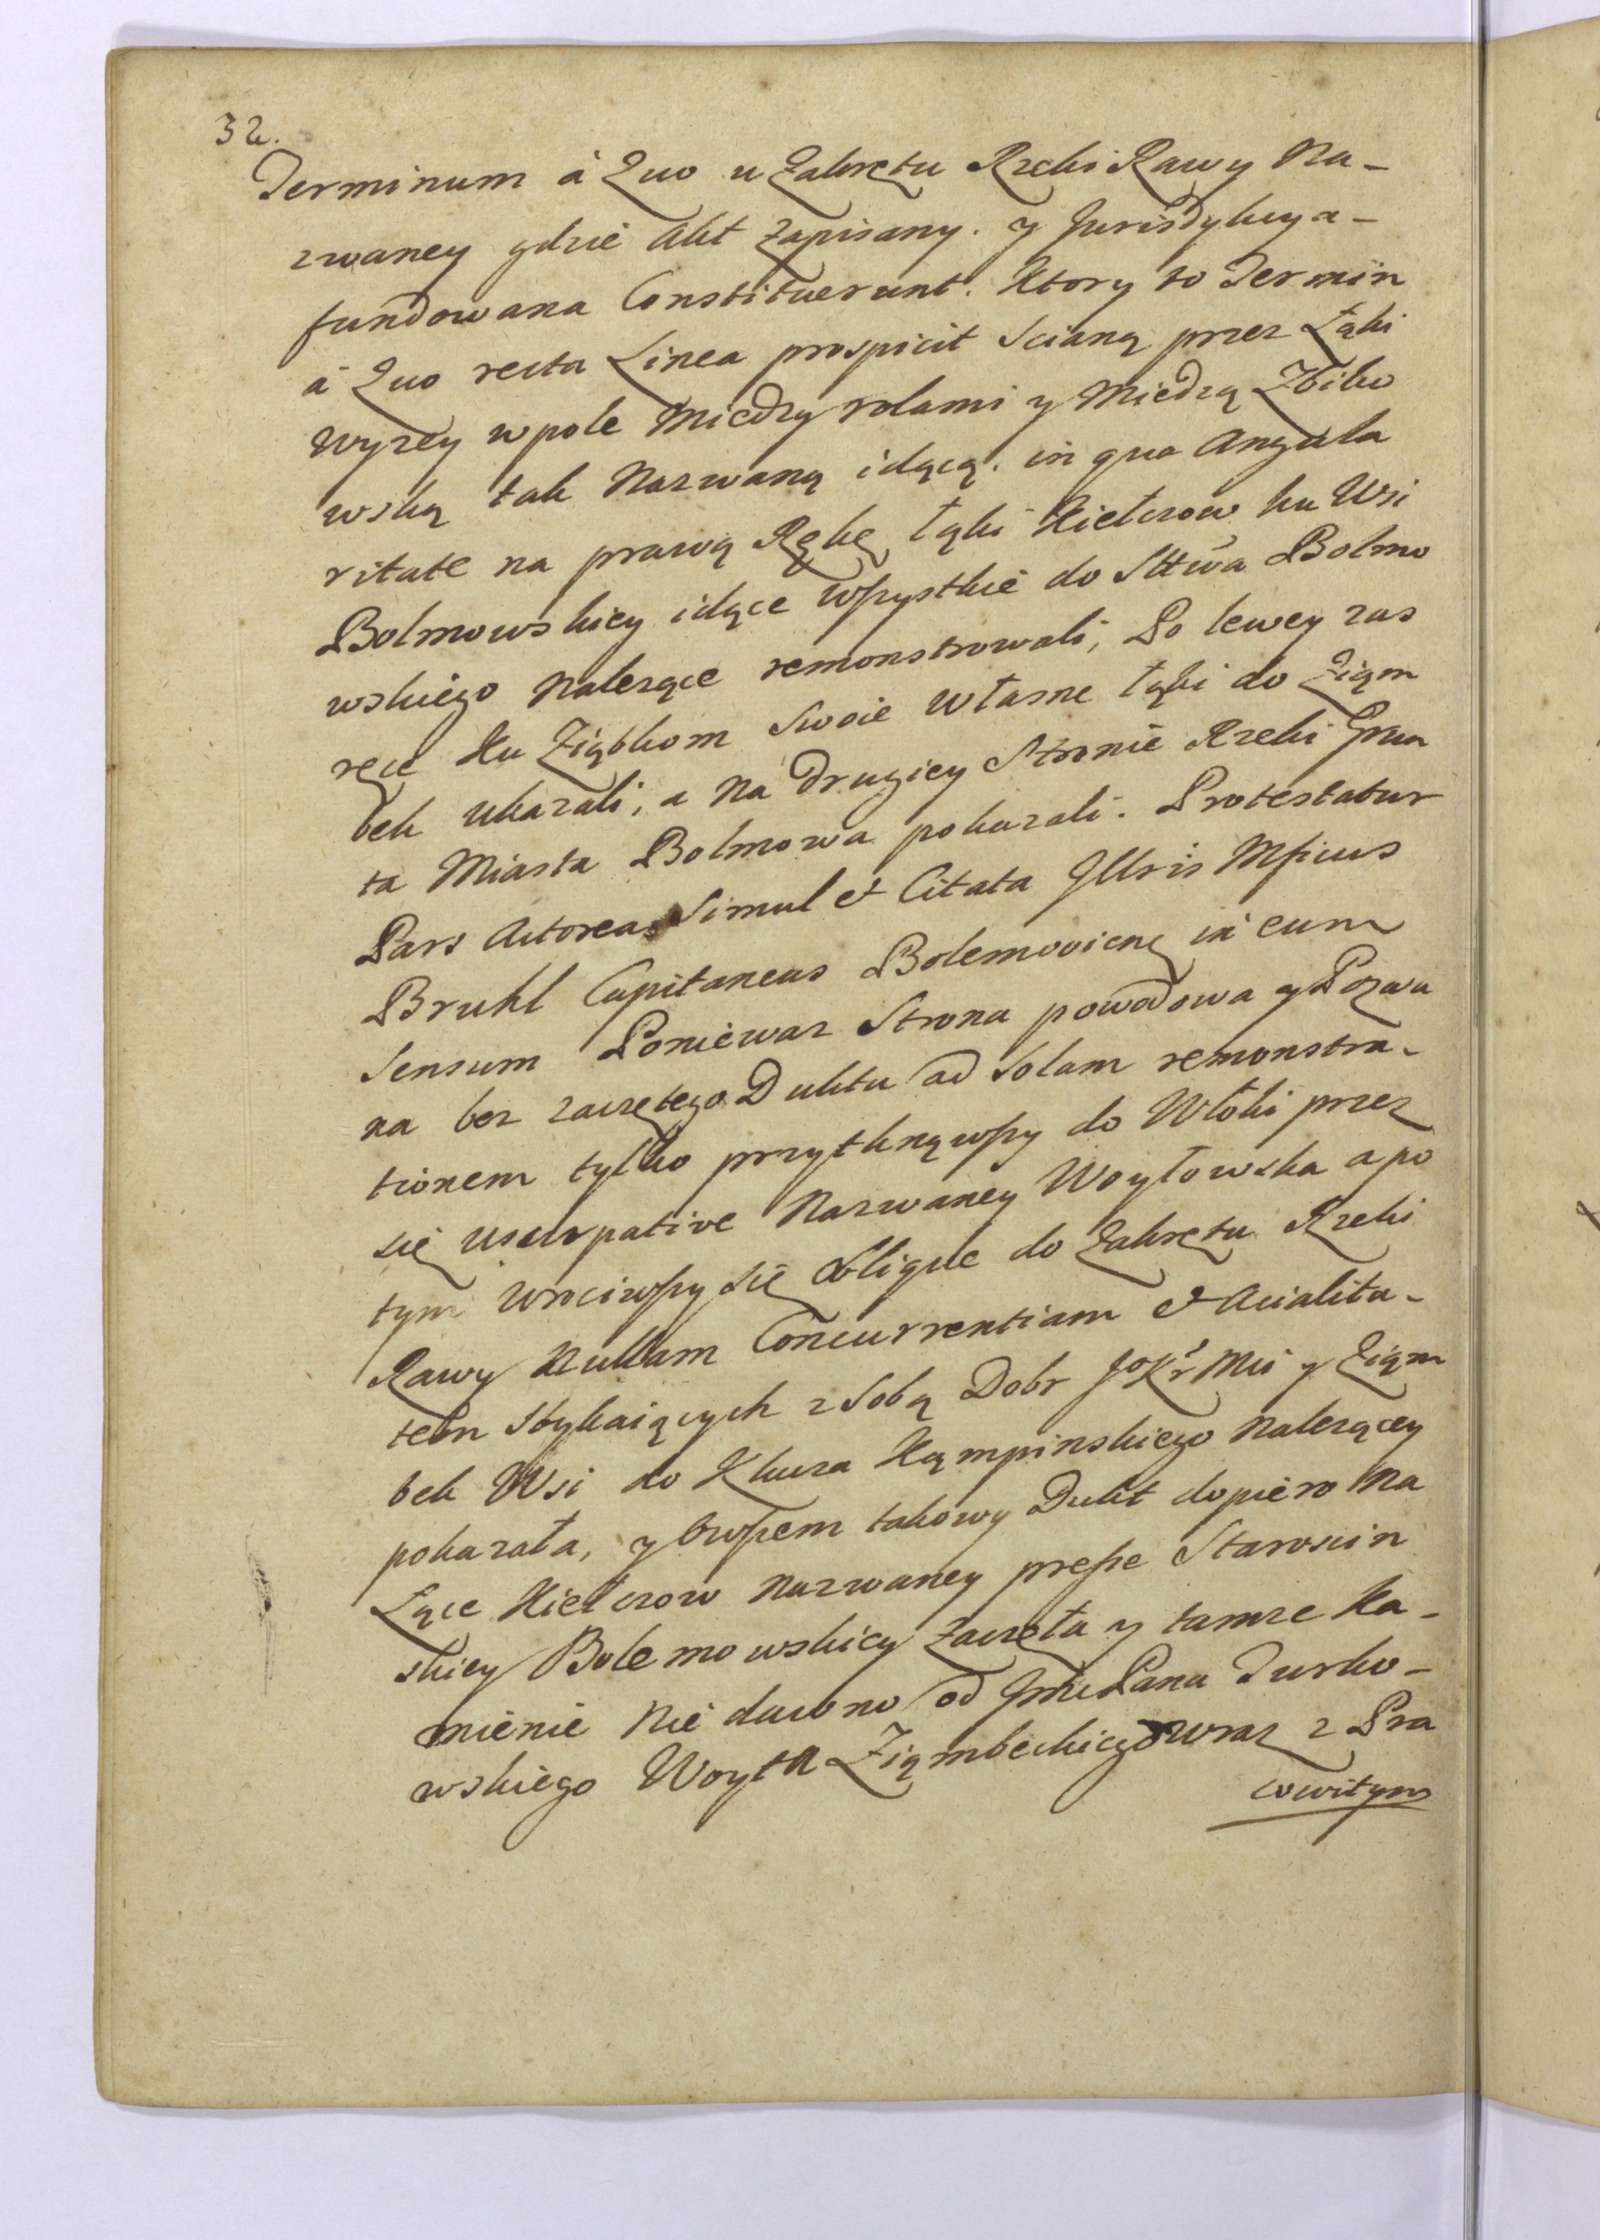 32.
Terminum á Quo u Zakrętu Rzeki Rawy Na-
zwaney gdzie Akt Zapisany. y Jurisdykcya-
fundowana Constituerunt. Ktory to Termin
á Quo recta Linea prospicit Scianą przez Łąki
Wyzey w pole Miedzy rolami y Miedzą Zbiko
wską tak Nazwaną idącą. in qua Angula
ritate na prawą Rękę łąki Kiełczow ku Wsi
Bolmowskiey idące Wszystkie do Sttwa Bolmo
wskiego Nalezące remonstrowali, Po lewey zas
ręce Ku Ziąbkom Swoie Własne łąki do Ziąm
bek Ukazali, a Na Drugiey Stronie Rzeki Grun
ta Miasta Bolmowa pokazali. Protestatur
Pars Actorea Simul et Citata Jllris Mficus
Bruhl Capitaneus Bolemovicn̄ in eum
Sensum Poniewaz Strona powodowa y Pozwa
na bez zaczętego Duktu ad Solam remonstra-
tionem tylko przytknąwszy do Włoki przez
się Usurpative Nazwaney Woytowska a po
tym Wrociwszy się Oblique do Zakrętu Rzeki
Rawy Nullam Concurrentiam et Acialita-
tem Stykaiących z Sobą Dobr JoKr̄ Mci y Ziąm
bek Wsi do Klucza Kąmpinskiego Nalezącey
pokazała, y Owszem takowy Dukt dopiero Na
Łące Kiełczow Nazwaney presse Staroscin
skiey Bolemowskiey Zaczęła y tamze Ka-
mienie Nie dawno od Jmci Pana Turko-
wskiego Woyta Ziąmbeckiego wraz z Pra
cowitym